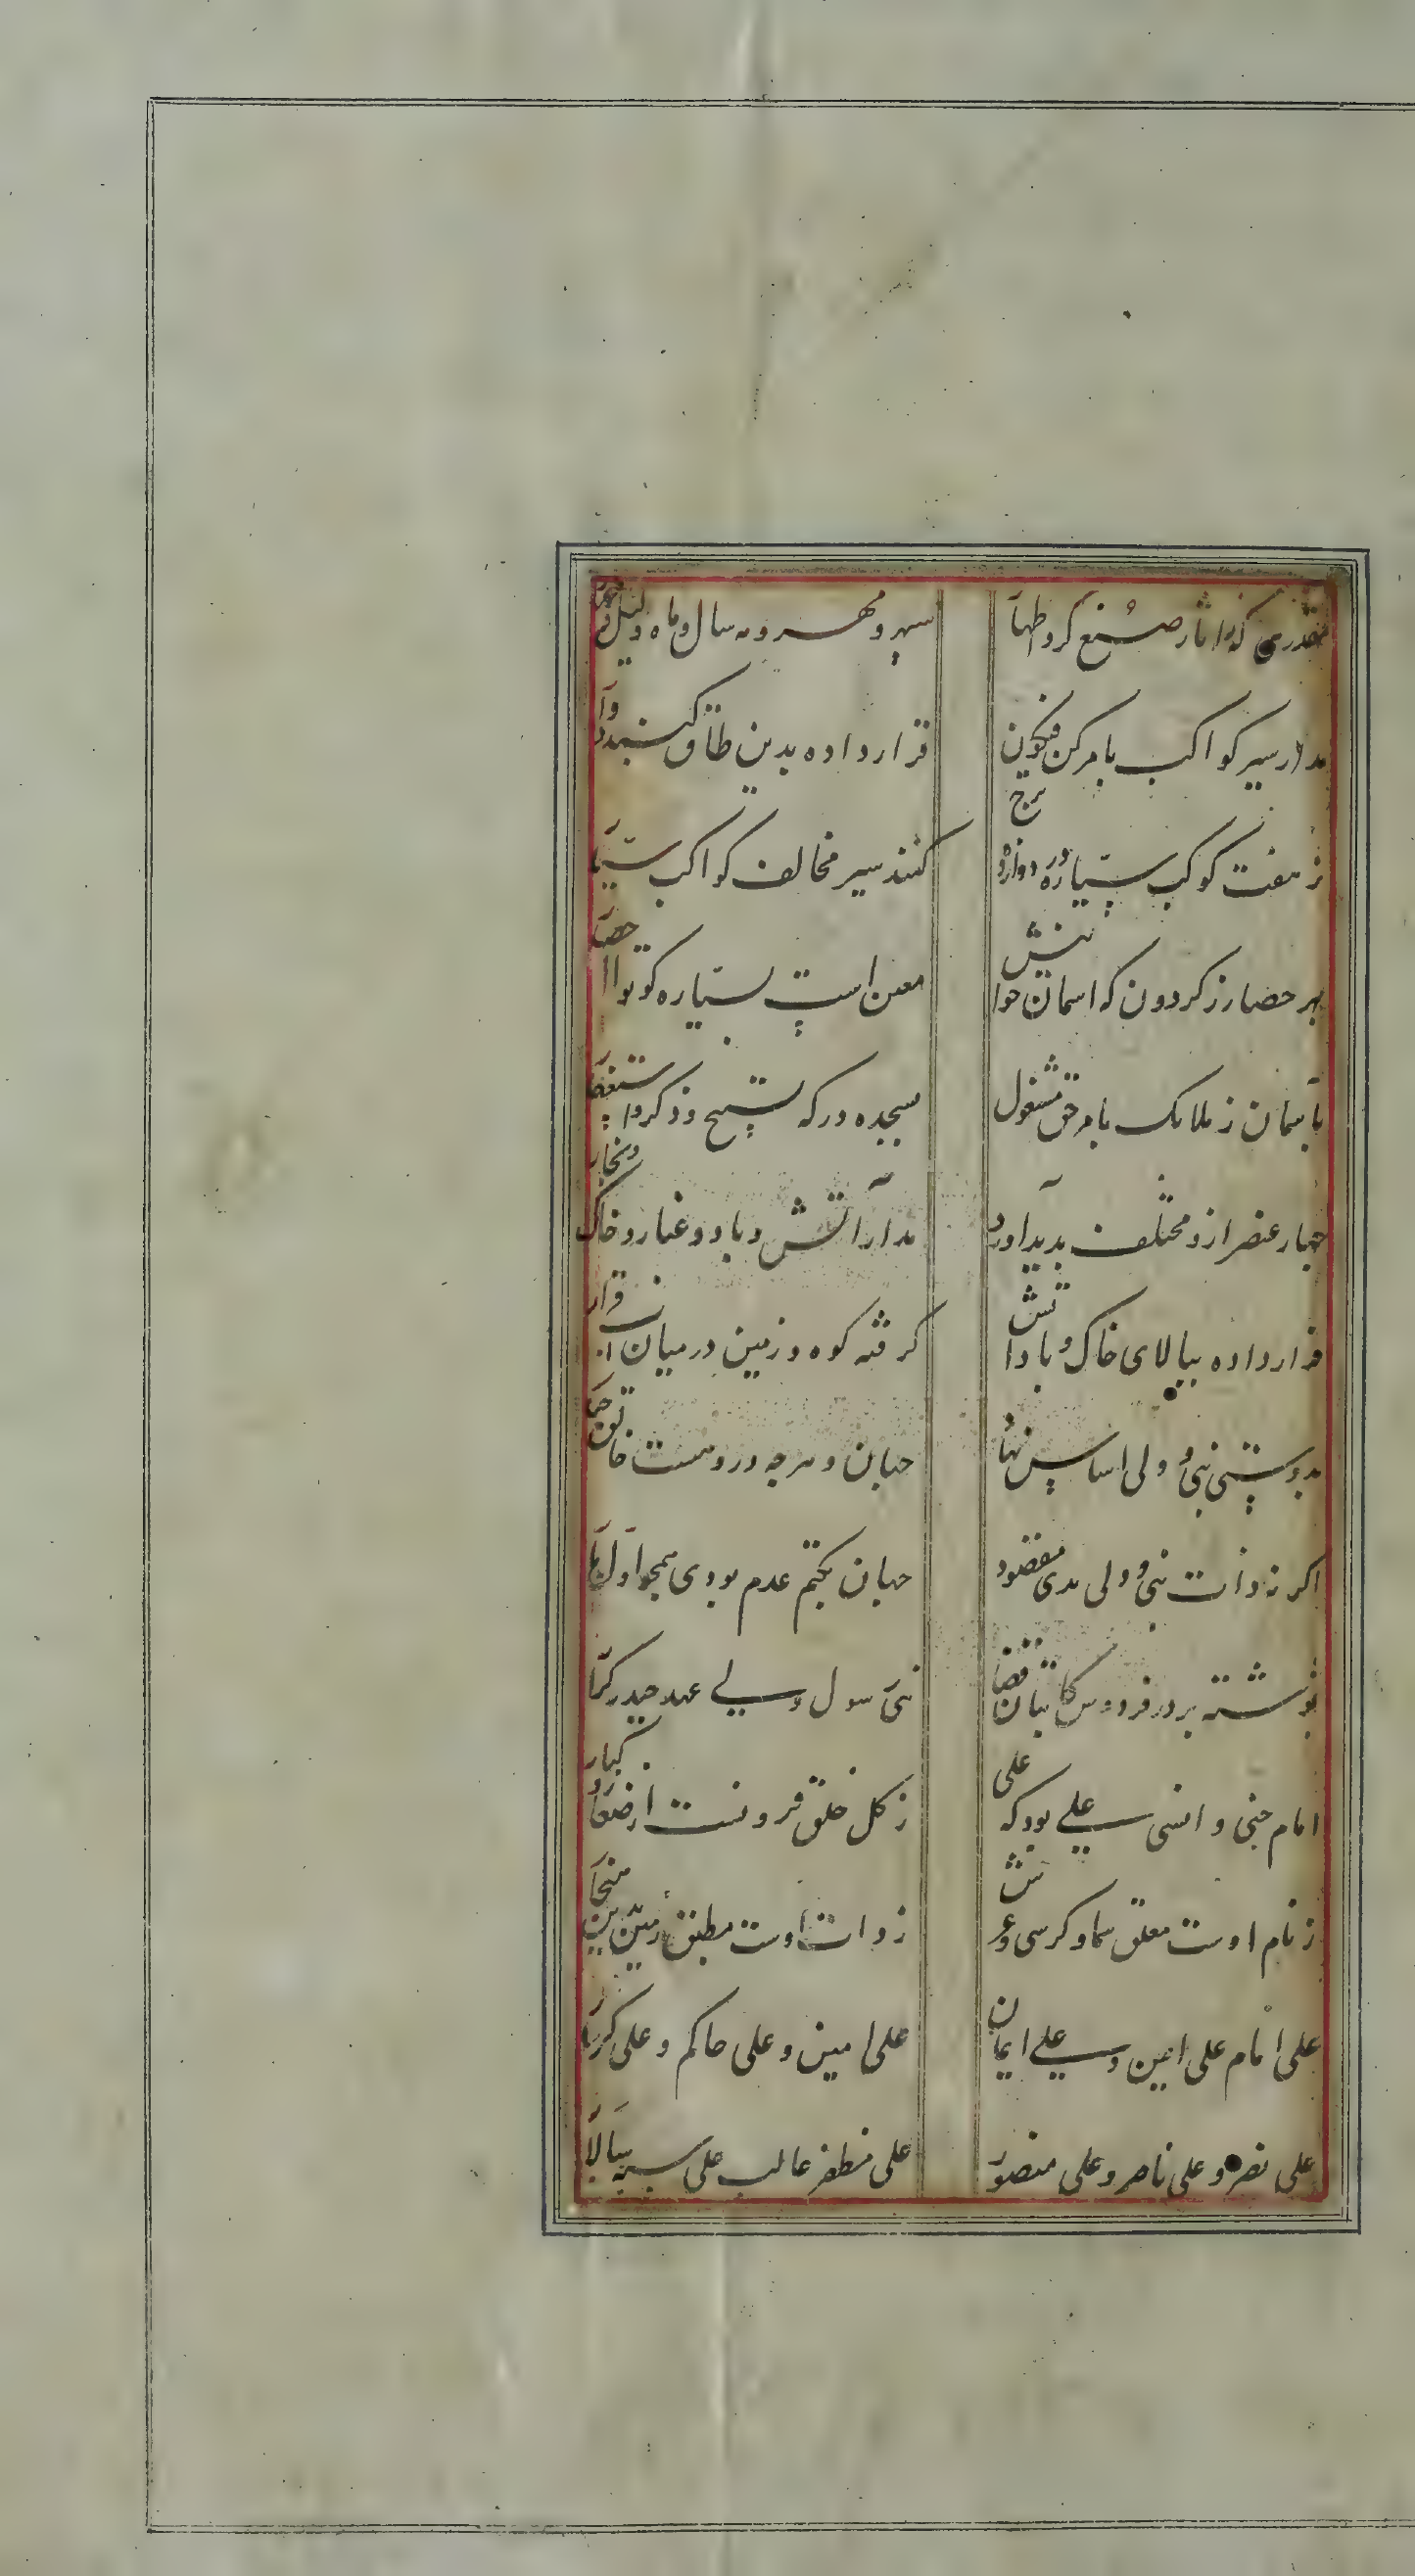 مقدری که ز اثار صنع کرد اظهار سپهر و مهر و مه سال و ماه و لیل و نهار
مدار سیر کواکب بامر کن فیکون قرار داده بدین طاق کنبد دوار
ز هفت کوکب سیاره در دوازده برج کنند سیر مخالف کواکب سیار
بهر حصار ز کردون که اسمان خوانیش معین است ستاره کوتوال حصار
باسمان ز ملایک بامر حق مشغول بسجده در که تسبیح و ذکر و استغفار
چهار عنصر ازو مختلف پدید اورد مدار آتش و باد و غبار و خاک و بخار
قرار داده ببالای خاک و باد اتش کرفته کوه و زمین در میان آب قرار
بدوستی نبی و ولی اساس نهاد جهان و هرچه درو هست خالق جبار
اکر نه ذات نبی و ولی بدی مقصود جهان بکتم عدم بودی همچو اول بار
نوشته بر در فردوس کاتبان قضا نبی رسول و ولی عهد حیدر کرار
امام جنی و انسی علی بود که علی ز کل خلق فزونست از صغار و کبار
ز نام اوست معلق سما و کرسی و عرش ز ذات اوست مطبق زمین بدین هنجار
علی امام علی امین و علی ایمان علی امین و علی حاکم و علی کرار
علی نصر و علی ناصر و علی منصور علی مظفر غالب علی سپه سالار